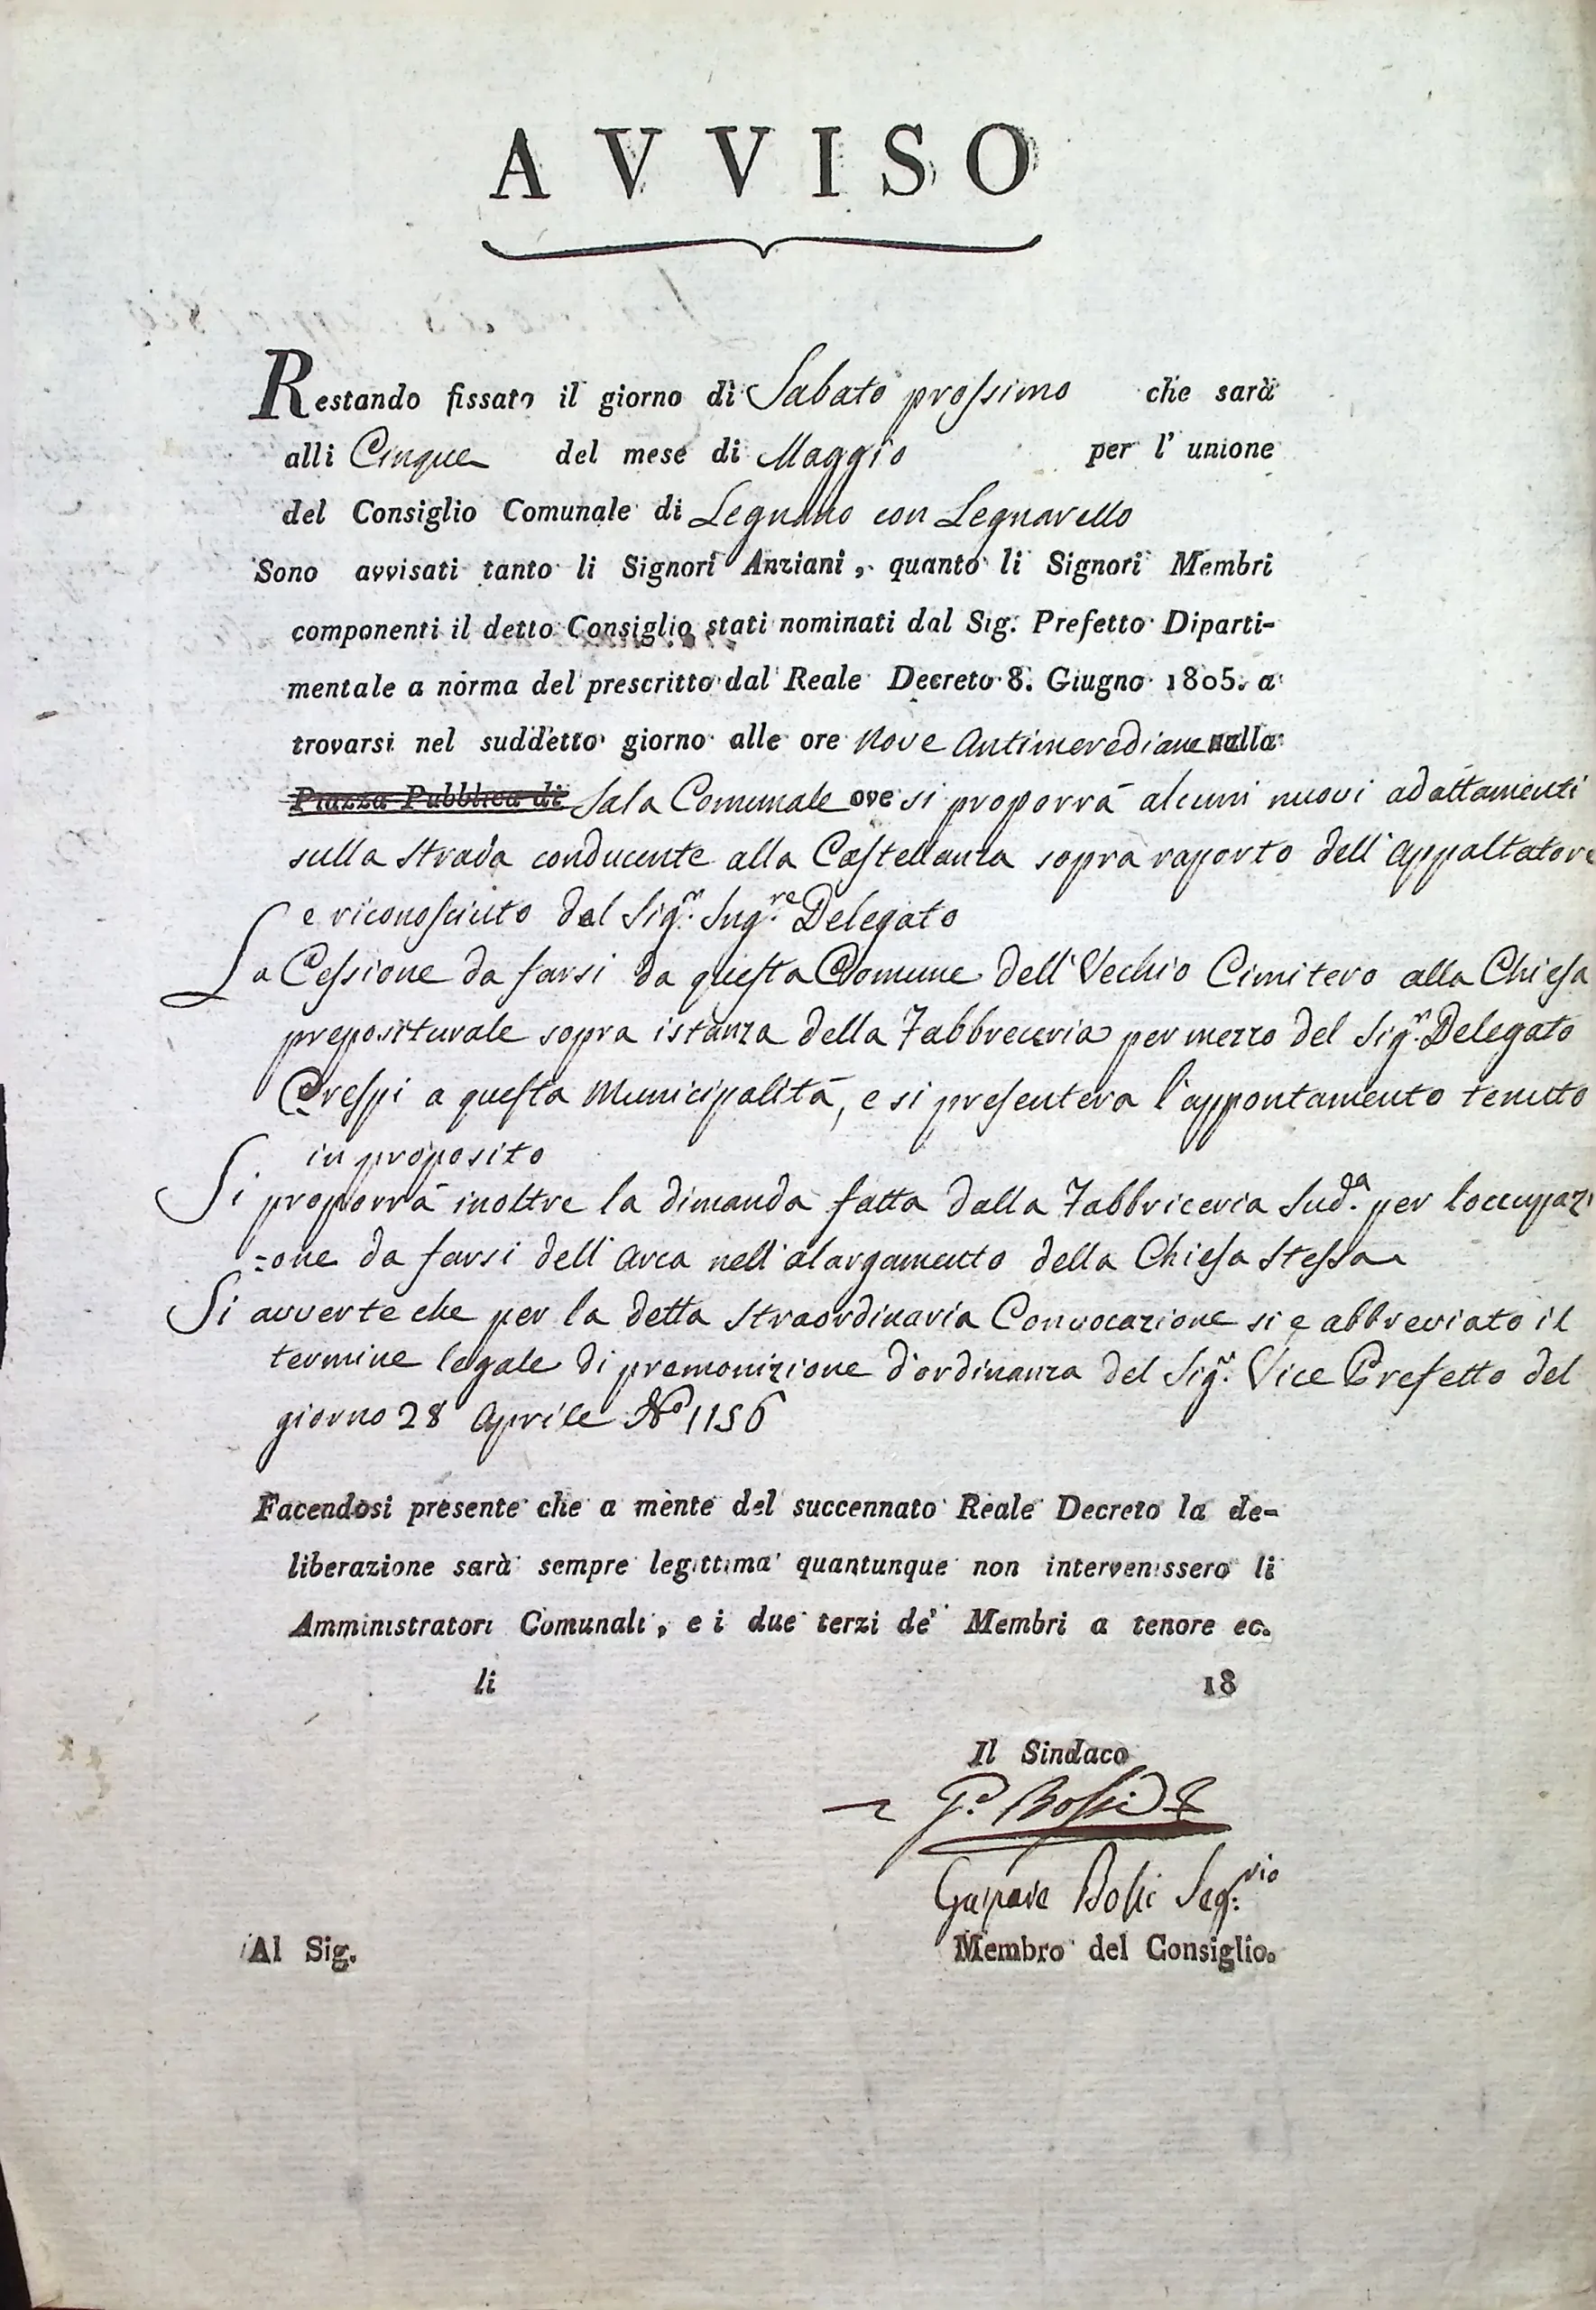 AVVISO
Restando fissato il giorno di Sabato prossimo che sarà
alli Cinque del mese di Maggio per l' unione
del Consiglio Comunale di Legnano con Legnarello
Sono avvisati tanto li Signori Anziani, quanto li Signori Membri
componenti il detto Consiglio stati nominati dal Sig. Prefetto Diparti-
mentale a norma del prescritto dal Reale Decreto 8. Giugno 1805. a
trovarsi nel suddetto giorno alle ore nove Antimerediane nella
Piazza Pubblica di Sala Comunale ove si proporrà alcuni nuovi adattamenti
sulla strada conducente alla Castellanza sopra raporto dell' Appaltatore
e riconosciuto dal Sig.r Ing.re Delegato
La Cessione da farsi da questa Comune dell' Vechio Cimitero alla Chiesa
prepositurale sopra istanza della Fabbreceria per mezzo del Sig.r Delegato
Crespi a questa Municipalità, e si presentera l'appontamento tenuto
in proposito
Si proporrà inoltre la dimanda fatta dalla Fabbriceria Sud.a per l'occupazi
=one da farsi dell' Area nell' alargamento della Chiesa stessa
Si avverte che per la detta straordinaria Convocazione si e abbreviato il
termine legale di premonizione d'ordinanza del Sig.r Vice Prefetto del
giorno 28 Aprile N.o 1156
Facendosi presente che a mente del succennato Reale Decreto la de-
liberazione sarà sempre legittima quantunque non intervenissero li
Amministratori Comunali, e i due terzi de' Membri a tenore ec.
li 18
Il Sindaco
Bossi
Gaspare Bossi Seg.rio
Al Sig. Membro del Consiglio.